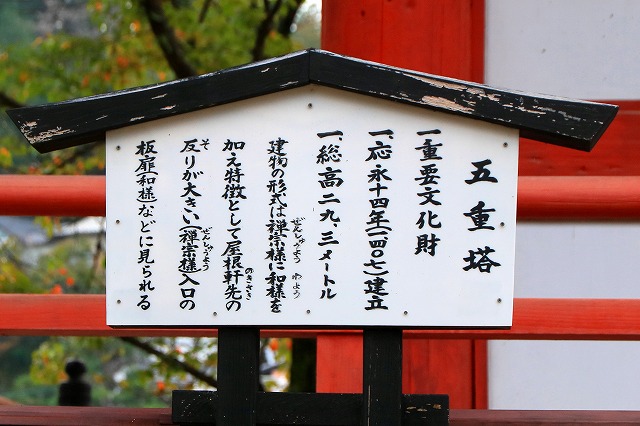 五重塔
一、重要文化財
一、応永十四年(一四〇七)建立
一、総高二九.三メートル
建物の形式は禅宗様に和様を
ぜんしゅうよう わよう
加え特徴として屋根軒先の
のきさき
反りが大きい(禅宗様)入口の
そ ぜんしゅうよう
板扉(和様)などに見られる